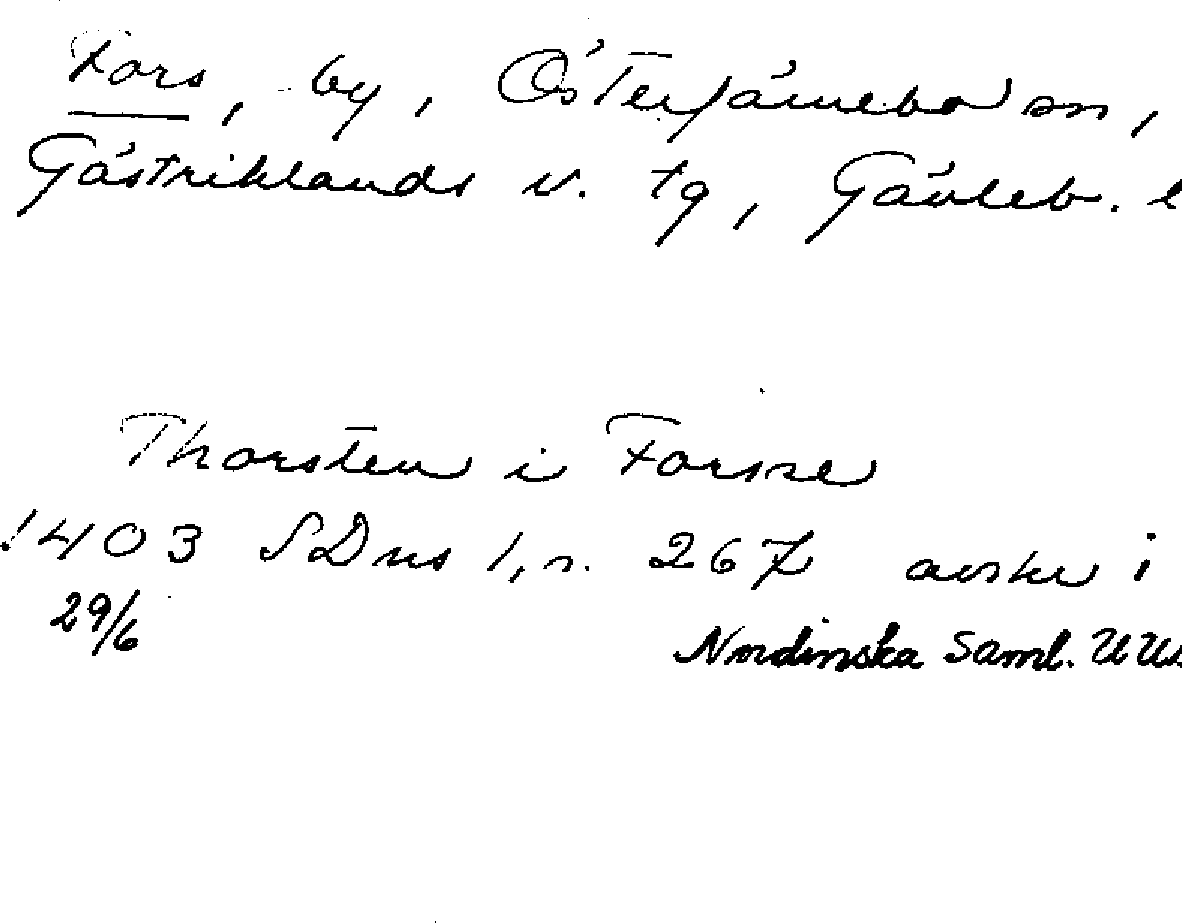 Fors, by, Österfärnebo sn,
Gästriklands v. tg, Gävleb. l
Thorsten i Forsse
1403 SDns 1, s. 267 avskr i
29/6
Nordinska Saml. UUB